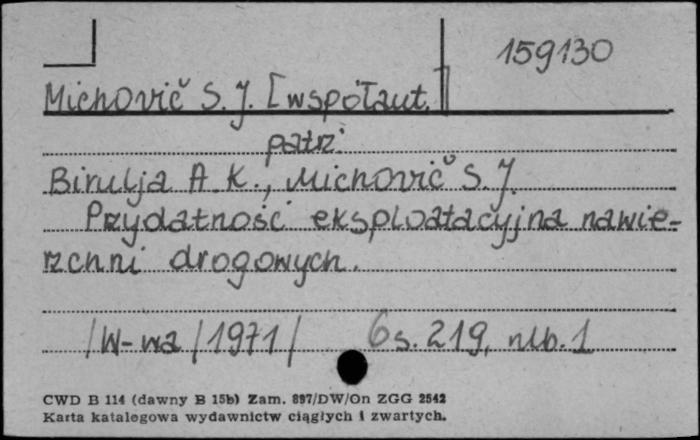 159130
Michovič S. J. [współaut.]
patrz:
Birulja A. K., Michovič S. J.
Przydatność eksploatacyjna nawie-
rzchni drogowych.
/W-wa/1971/ 6 s. 219, nlb. 1
CWD B 114 (dawny B 15b) Zam. 897/DW/On ZGG 2542
Karta katalogowa wydawnictw ciągłych i zwartych.